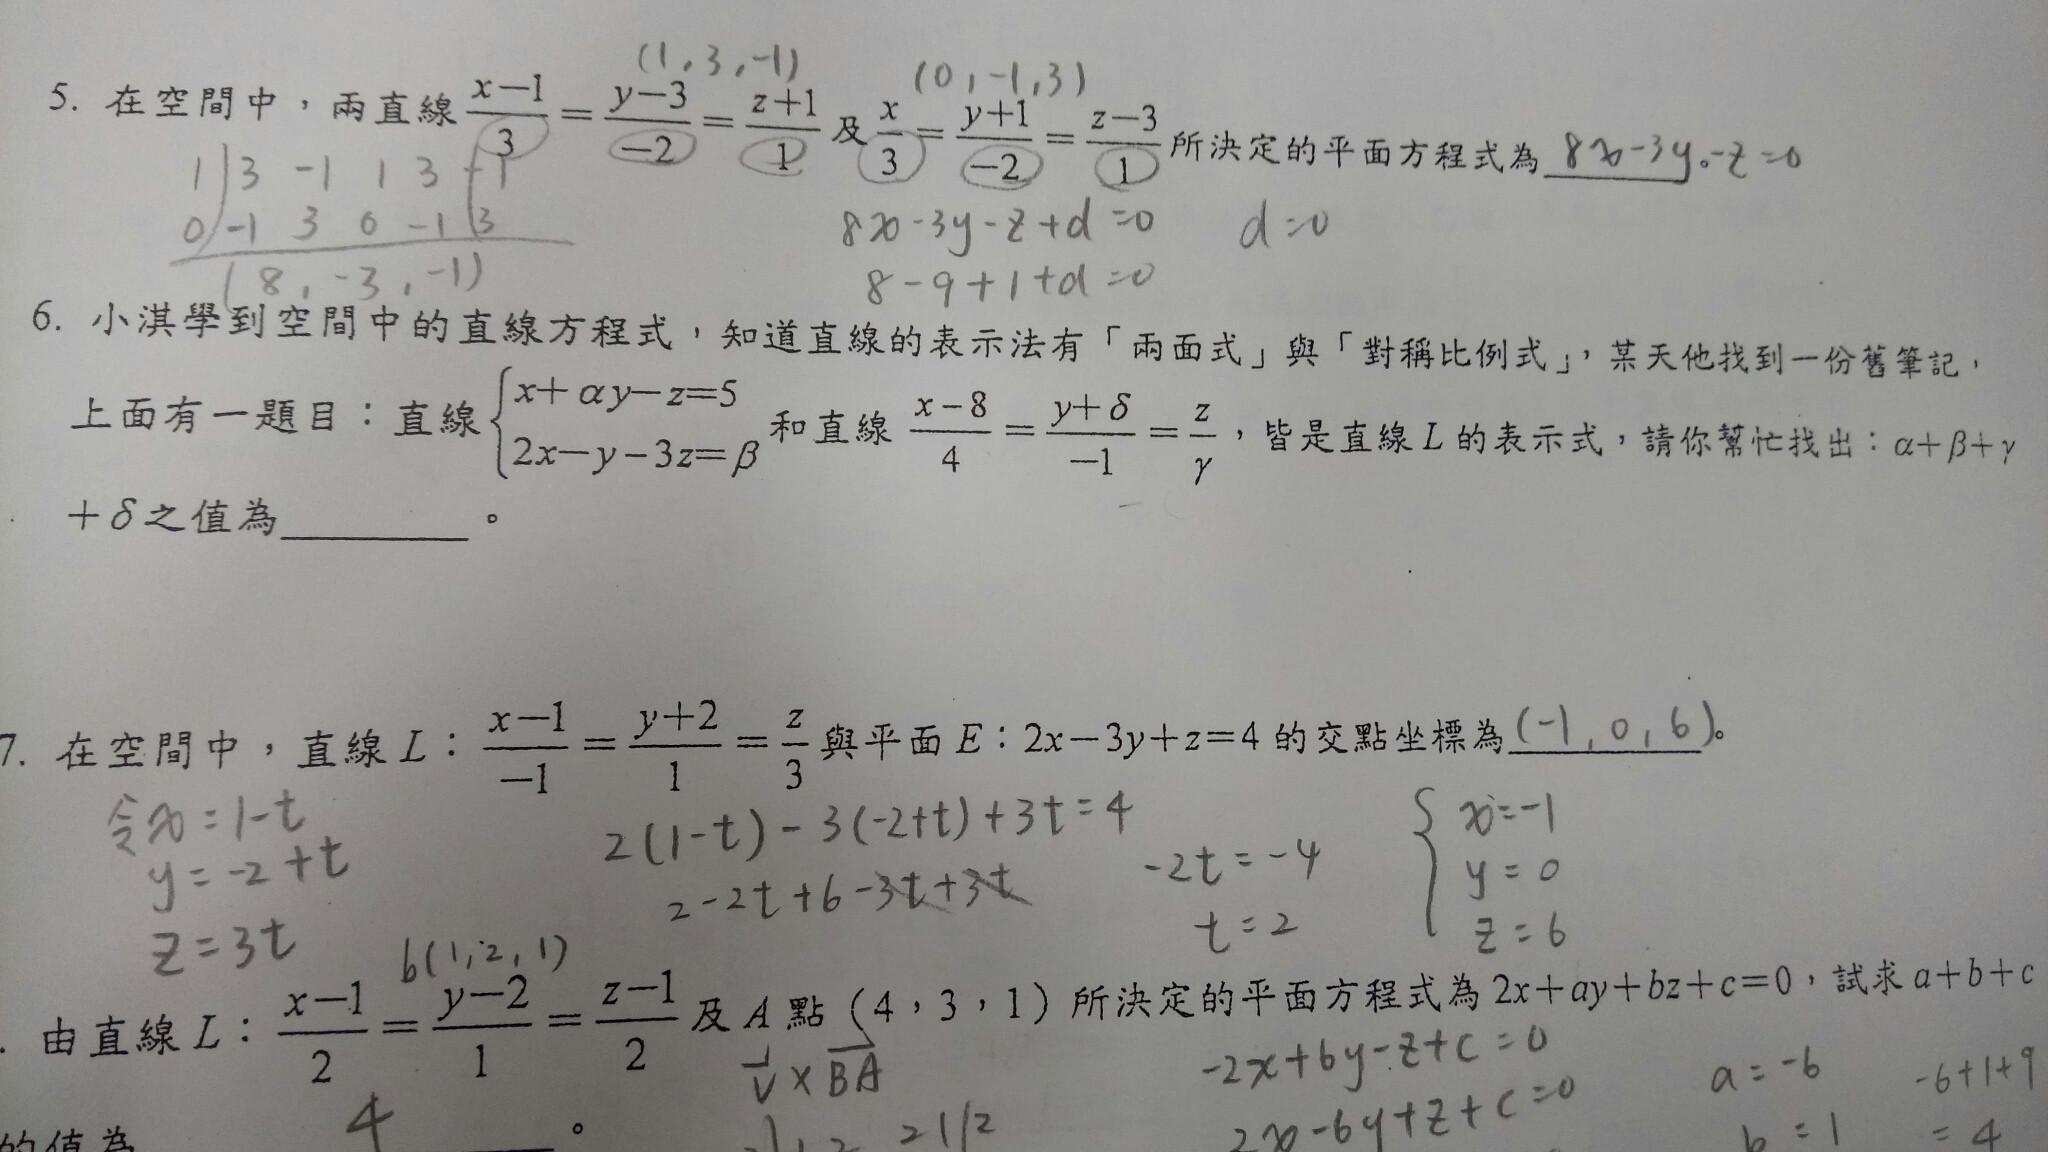 (1,3,-1) (0,-1,3)
5. 在空間中，兩直線 (x-1)/3 = (y-3)/-2 = (z+1)/1 及 x/3 = (y+1)/-2 = (z-3)/1 所決定的平面方程式為 8x-3y-z=0。
1 3 -1 1 3 -1
0 -1 3 0 -1 3
(8,-3,-1)
8x-3y-z+d=0 d=0
8-9+1+d=0
6. 小淇學到空間中的直線方程式，知道直線的表示法有「兩面式」與「對稱比例式」，某天他找到一份舊筆記，
上面有一題目：直線 { x+αy-z=5 2x-y-3z=β 和直線 (x-8)/4 = (y+δ)/-1 = z/γ，皆是直線L的表示式，請你幫忙找出：α+β+γ
+δ之值為______。
7. 在空間中，直線L：(x-1)/-1 = (y+2)/1 = z/3 與平面E：2x-3y+z=4的交點坐標為 (-1,0,6)。
令x=1-t
y=-2+t
z=3t
2(1-t)-3(-2+t)+3t=4
2-2t+6-3t+3t
-2t=-4
t=2
{ x=-1
y=0
z=6
b(1,2,1)
. 由直線L：(x-1)/2 = (y-2)/1 = (z-1)/2 及A點(4，3，1)所決定的平面方程式為2x+ay+bz+c=0，試求a+b+c
的值為 4。
V×BA
2 1 2
-2x+6y-z+c=0
2x-6y+z+c=0
a=-6
b=1
-6+1+9
=4